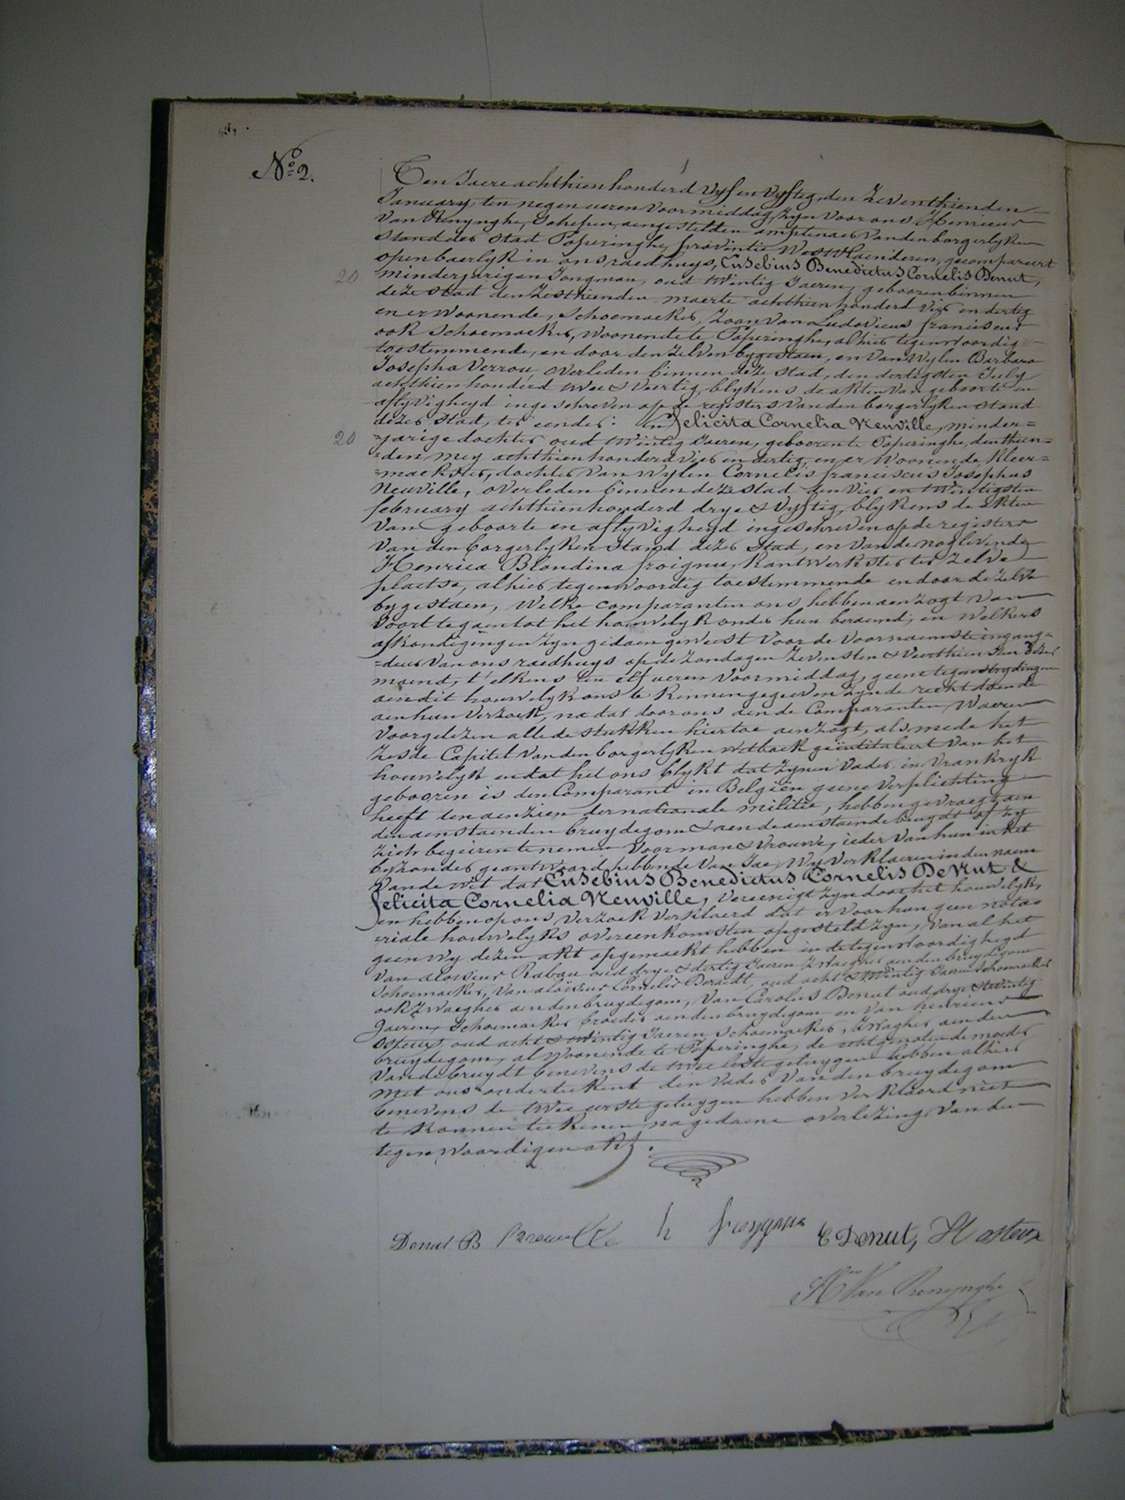 N° 2.
Ten Jaere achthien honderd vyf en vyftig, den Zeventhienden
January, ten negen uren voormiddag, zyn voor ons Henricus
Van Renynghe, schepen, aengestelden amptenaer van den borgerlyken
stand der stad Poperinghe, provintie West Vlaenderen, gecompareert
openbaerlyk in ons raedhuys, Eusebius Benedictus Cornelis Denut,
20 minderjarigen Jongman, oud twintig Jaeren, geboren binnen
deze stad den Zesthienden maerte achthien honderd vier en dertig
en er woonende, Schoemaeker, Zoon van Ludovicus franciscus
ook Schoemaeker, woonende te Poperinghe, alhier tegenwoordig
toestemmende, en door den zelven bygestaen, en van wylen Barbara
Josepha Verrou, overleden binnen deze stad, den dertigsten July
achthien honderd twee & veertig, blykens de akten van geboorte en
aflyvigheyd ingeschreven op de registers van den borgerlyken stand
dezer stad, ter eender: en felicita Cornelia Neuville, minder=
20 =jarige dochter oud twintig Jaeren, geboren te Poperinghe, den thien=
=den mey achthien honderd vier en dertig, en er woonende, kleer=
=maekster, dochter van wylen Cornelis franciscus Josephus
Neuville, overleden binnen deze stad den vier en twintigsten
february achthien honderd drye & vyftig, blykens de akten
van geboorte en aflyvigheyd ingeschreven op de registers
van den borgerlyken stand dezer stad, en van de nog levende
Henrica Blondina froignu, kantwerkster ter zelve
plaetse, alhier tegenwoordig toestemmende en door de zelve
bygestaen, welke comparanten ons hebben aenzogt van
voort te gaen tot het houwelyk onder hun beraemd, en welkers
afkondigingen zyn gedaen geweest voor de voornaemste ingang=
=deur van ons raedhuys op de zondagen Zevensten & veerthiensten dezer
maend, t'elkens ten elf ueren voormiddag, geene tegenstrydingen
aen dit houwelyk ons te kennen gegeven zynde recht doende
aen hun verzoek, na dat door ons aen de Comparanten waeren
voorgelezen alle de stukken hiertoe aenzogt, als mede het
zesde Capitel van den borgerlyken wetboek geïntituleert van het
houwelyk en dat het ons blykt dat zynen Vader in Vrankryk
geboren is den Comparant in Belgiën geene verpliehting
heeft ten aenzien der nationale militie, hebben gevraegd aen
den aenstaenden bruydegom & aen de aenstaende bruydt of zy
zich begeiren te nemen voor man & vrouwe, ieder van hun in het
byzonder geantwoord hebbende van Jae, Wy verklaeren in den naem
van de wet dat Eusebius Benedictus Cornelis Denut &
felicita Cornelia Neuville, vereenigd zyn door het houwelyk,
en hebben op ons verzoek verklaerd dat er voor hun geen nota=
riale houwelyks overeenkomsten opgesteld zyn, van al het
geen wy dezen akt opgemaekt hebben in de tegenwoordigheyd
van aloisius Rabau oud drye & dertig Jaeren, Zwaeger aen den bruydegom
Schoemaeker, van aloisius Cornelis Beraedt, oud acht & twintig Jaeren Schoenmaeker
ook Zwaegher aen den bruydegom, van Carolus Denut oud drye & twintig
Jaeren, Schoemaeker broeder aen den bruydegom en van henricus
Osteux, oud acht & twintig Jaeren, Schoemaeker, Zwagher aen den
bruydegom, al woonende te Poperinghe, de echtgenote de moeder
van de bruydt benevens de twee leste getuygen hebben alhier
met ons onderteekent den vader van den bruydegom
benevens de twee eerste getuygen hebben verklaerd niet
te konnen teekenen na gedaene overlezing van den
tegenwoordigen akt.
Denut B neuville h froygnu E Denut, H osteux
H Van Renynghe